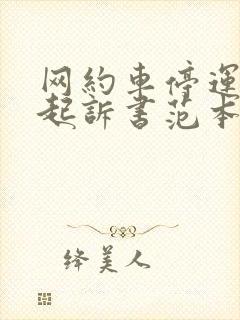 网约车停運
起訴書范本
绛美人